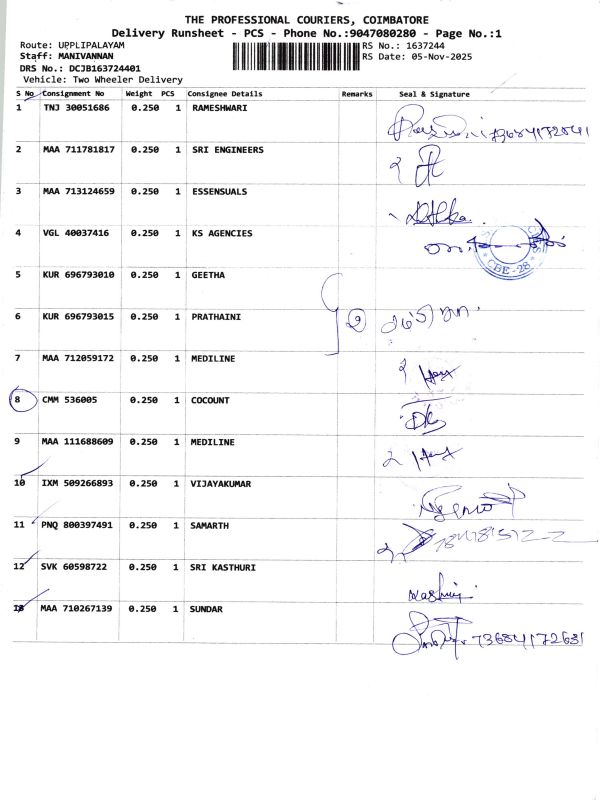 THE PROFESSIONAL COURIERS, COIMBATORE
Delivery Runsheet - PCS - Phone No.:9047080280 - Page No.:1
Route: UPPLIPALAYAM RS No.: 1637244
Staff: MANIVANNAN RS Date: 05-Nov-2025
DRS No.: DCJB163724401
Vehicle: Two Wheeler Delivery
S No Consignment No Weight PCS Consignee Details Remarks Seal & Signature
1 TNJ 30051686 0.250 1 RAMESHWARI
2 MAA 711781817 0.250 1 SRI ENGINEERS
3 MAA 713124659 0.250 1 ESSENSUALS
4 VGL 40037416 0.250 1 KS AGENCIES
CBE-28
5 KUR 696793010 0.250 1 GEETHA
6 KUR 696793015 0.250 1 PRATHAINI 2
7 MAA 712059172 0.250 1 MEDILINE
8 CMM 536005 0.250 1 COCOUNT
9 MAA 111688609 0.250 1 MEDILINE
10 IXM 509266893 0.250 1 VIJAYAKUMAR
11 PNQ 800397491 0.250 1 SAMARTH
12 SVK 60598722 0.250 1 SRI KASTHURI
13 MAA 710267139 0.250 1 SUNDAR
73684172631